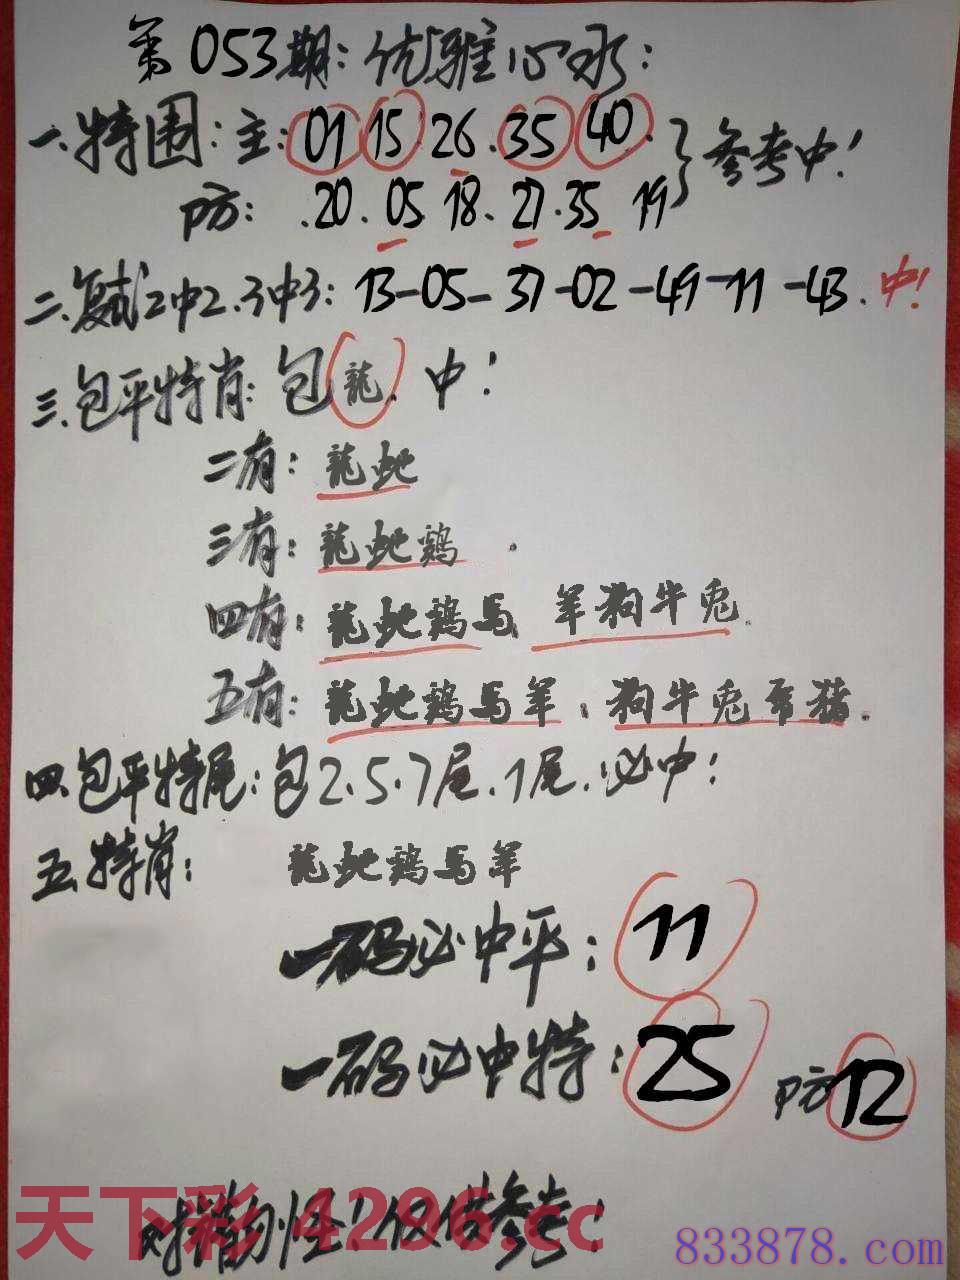 第053期:优雅心水:
一.特围:主:01 15 26.35 40. }参考中!
防:.20.05 18.27.35 19
二.复式2中2.3中3:13-05-37-02-49-11-43.中!
三.包平特肖:包龍.中!
二有:龍虵
三有:龍虵鶏.
四有:龍虵鶏馬、羊狗牛兎.
五有:龍虵鶏馬羊、狗牛兎 猪.
四.包平特尾:包2.5.7尾.1尾.必中:
五.特肖: 龍虵鶏馬羊
一码必中平:11
一码必中特:25 防12
仅供参考!
天下彩 4296.cc
833878.com